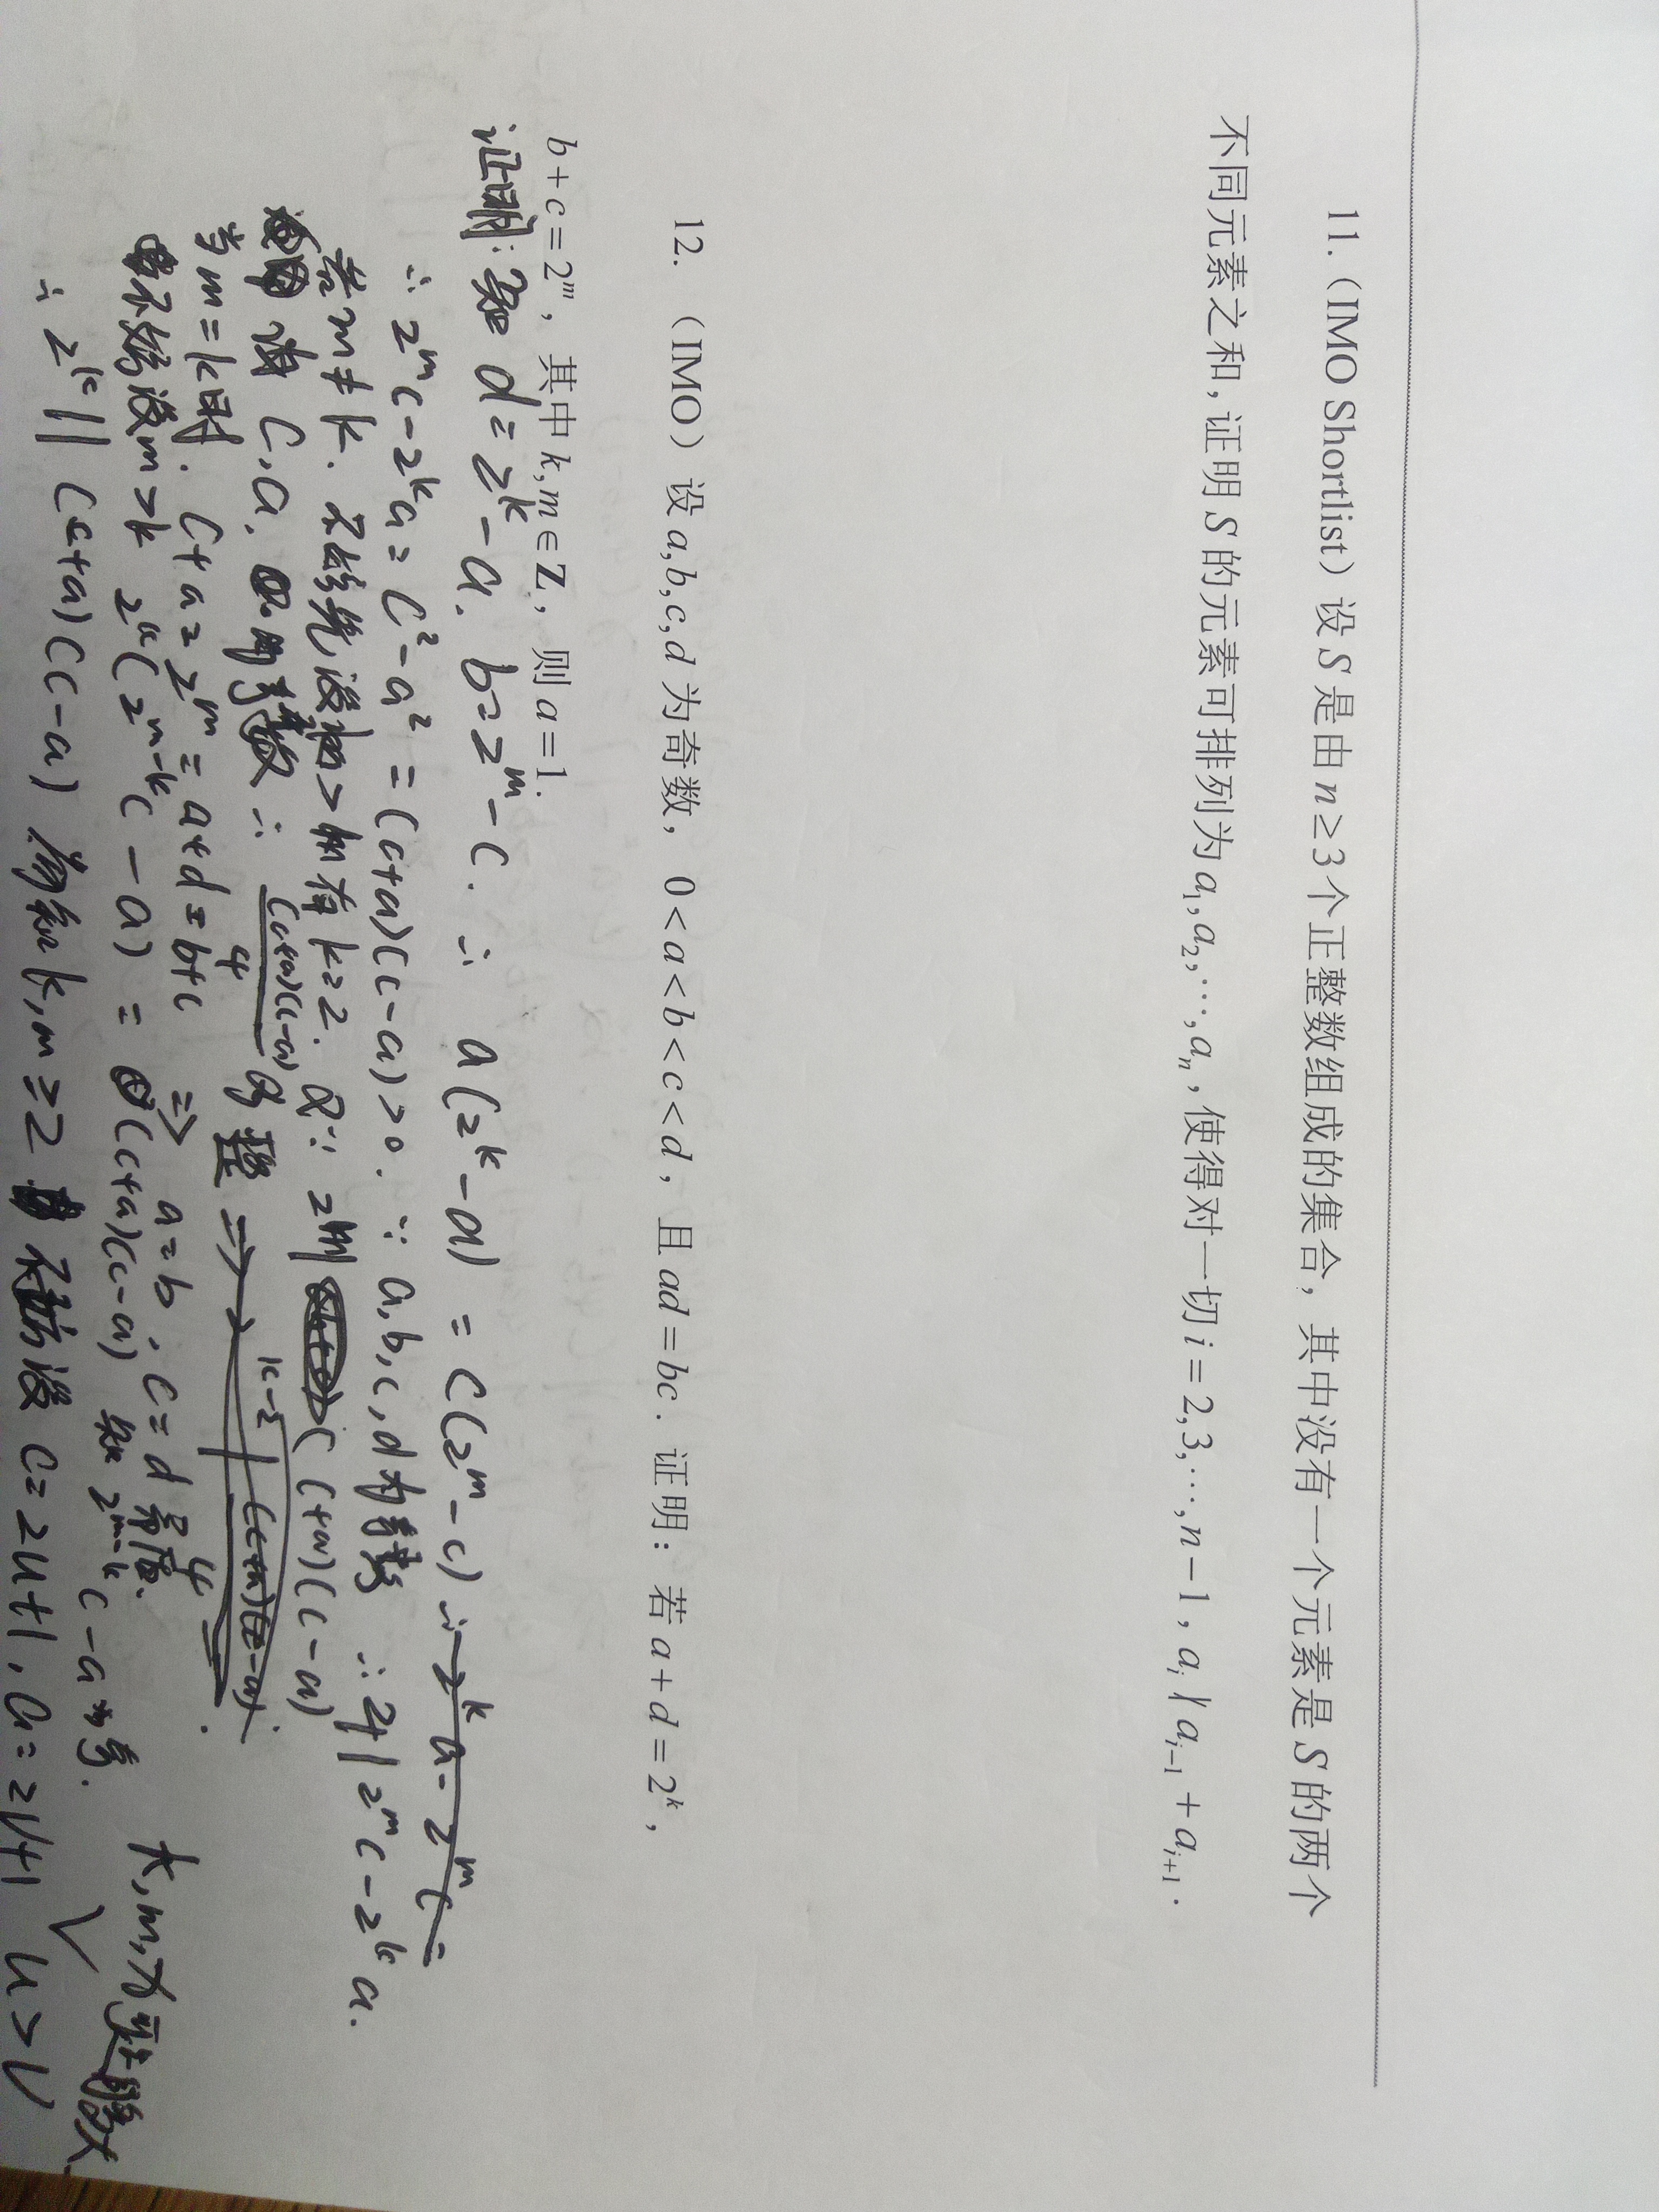 11.（IMO Shortlist）设 S 是由 n≥3 个正整数组成的集合，其中没有一个元素是 S 的两个
不同元素之和, 证明 S 的元素可排列为 a₁,a₂,⋯,aₙ , 使得对一切 i=2,3,⋯,n−1 , aᵢ ∤ aᵢ₋₁+aᵢ₊₁ .
12.（IMO）设 a,b,c,d 为奇数，0<a<b<c<d , 且 ad=bc . 证明：若 a+d=2ᵏ ,
b+c=2ᵐ , 其中 k,m∈Z , 则 a=1.
证明: d=2ᵏ-a. b=2ᵐ-c. ∴ a(2ᵏ-a) = c(2ᵐ-c) ∴ 2ᵏa-2ᵐc=
∴ 2ᵐc-2ᵏa=c²-a²=(c+a)(c-a)>0. ∵ a,b,c,d为奇数 ∴ 2ᵐc-2ᵏa.
若m≠k. 有k≥2. (c+a)(c-a)
c,a. 均为奇数 ∴ (c+a)(c-a) / 4 为 整 ⇒ k-2
当m=k时. c+a=2ᵐ=a+d=b+c ⇒ a=b, c=d 矛盾.
不妨设m>k 2ᵏ(2ᵐ⁻ᵏc-a) = (c+a)(c-a) 知 2ᵐ⁻ᵏc-a为奇.
k,m,为正整数
∴ 2ᵏ || (c+a)(c-a) 易知k,m≥2 不妨设 c=2u+1, a=2v+1 u>v